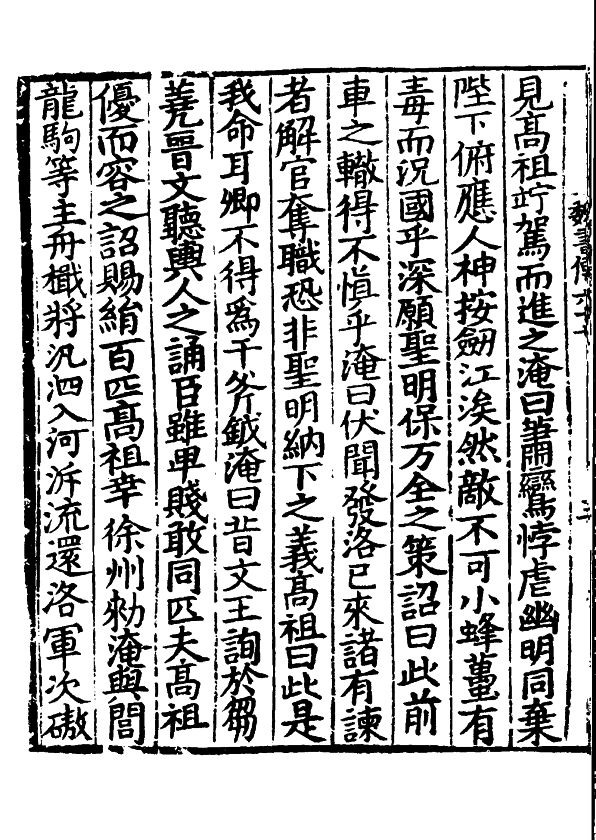 魏書傳六十七
見髙祖竚駕而進之淹曰蕭鸞悖虐幽明同棄
陛下俯應人神按劒江涘然敵不可小蜂蠆有
毒而況國乎深願聖明保万全之策詔曰此前
車之轍得不慎乎淹曰伏聞發洛已來諸有諫
者解官奪職恐非聖明納下之義髙祖曰此是
我命耳卿不得爲干斧鉞淹曰昔文王詢於芻
蕘晉文聽輿人之誦臣雖卑賤敢同匹夫髙祖
優而容之詔賜絹百匹髙祖幸徐州勑淹與閭
龍駒等主舟檝將汎泗入河泝流還洛軍次磝